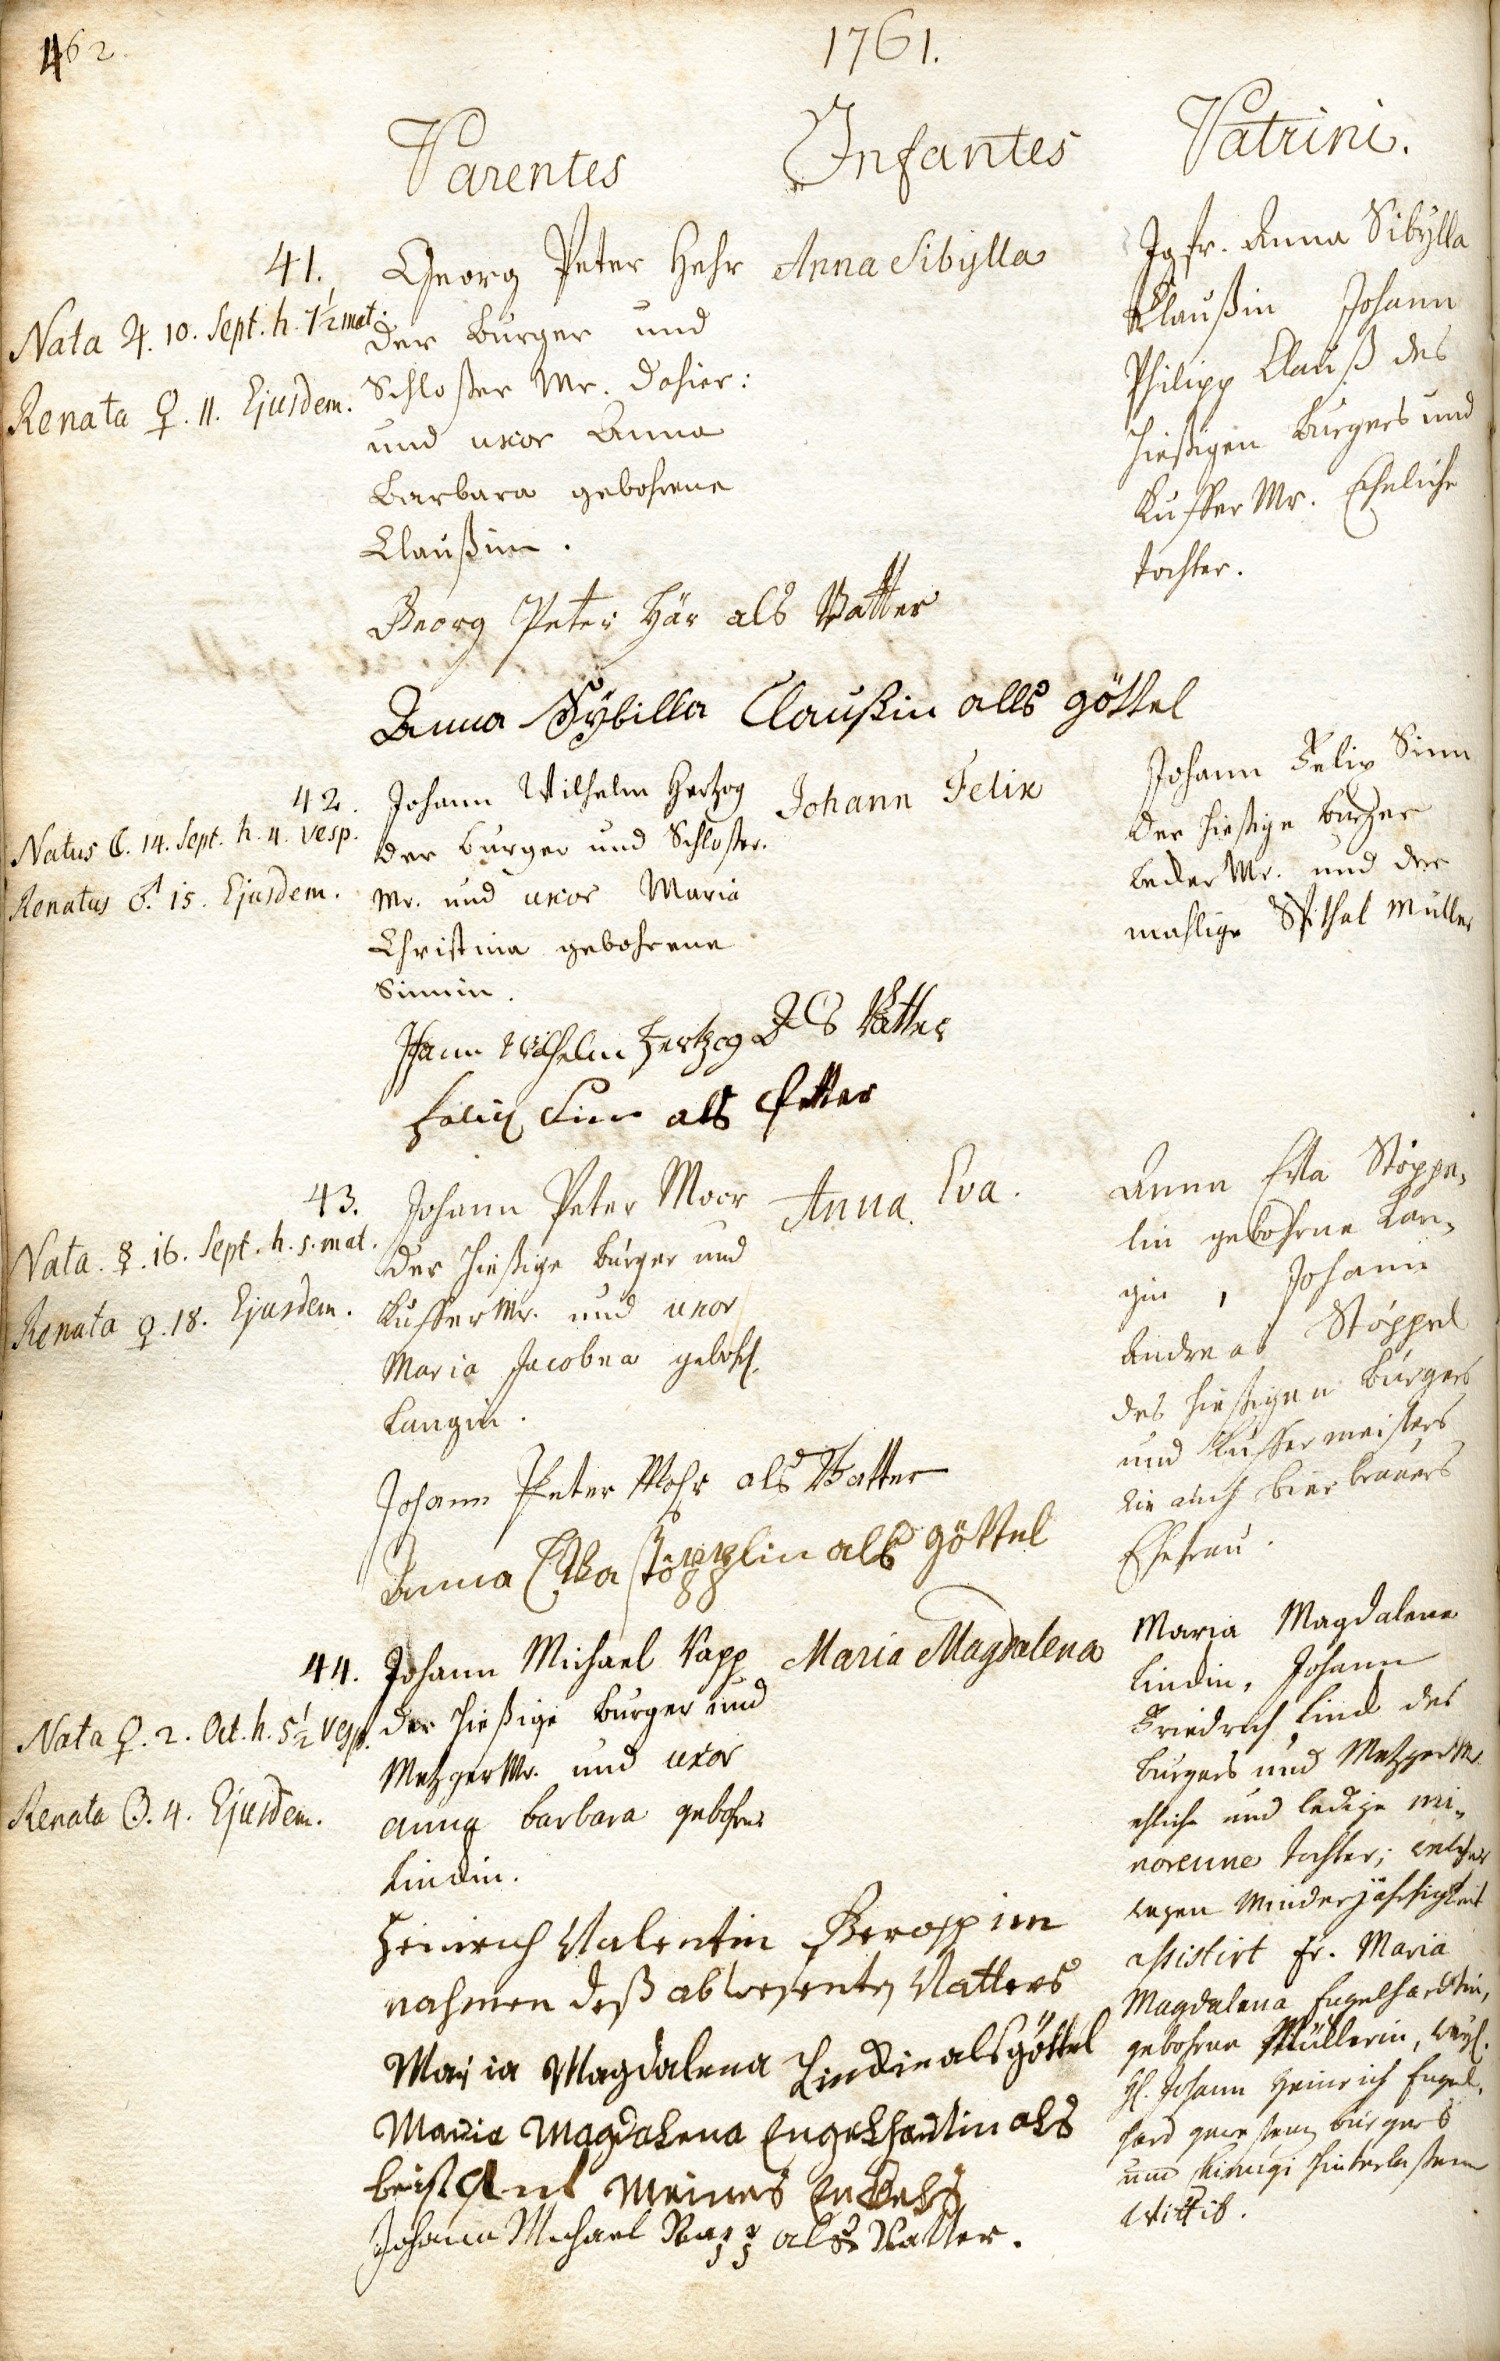 462
1761.
Parentes
Infantes
Patrini.
41.
Nata ♃. 10. Sept. h. 7½ mat.
Renata ♀. 11. Ejusdem.
Georg Peter Hehr
der burger und
Schloßer Mr. dahier:
und uxor Anna
Barbara gebohrene
Claußin.
Anna Sibylla
Jgfr. Anna Sibylla
Claußin Johann
Philipp Clauß des
hießigen burgers und
Kuffer Mr. Eheliche
tochter.
Georg Peter Här als Vatter
Anna Sybilla Claußin alls göttel
42.
Natus ☾. 14. Sept. h. 4. vesp.
Renatus ♂. 15. Ejusdem.
Johann Wilhelm Hertzog
der burger und Schloßer.
Mr. und uxor Maria
Christina gebohrene
Sinnin.
Johann Felix
Johann Felix Sinn
der hießige burger
becker Mr. und der
mahlige Spithal müller
Johann Wilhelm Hertzog Als Vatter
Felix Sinn als Petter
43.
Nata. ☿. 16. Sept. h. 5. mat.
Renata ♀. 18. Ejusdem.
Johann Peter Moor
der hießige burger und
Kuffer Mr. und uxor
Maria Jacobea geboh.
Langin.
Anna Eva.
Anna Eva Stöppe-
lin gebohrne Lan-
gin, Johann
Andreas Stöppel
des hießigen burgers
und Kuffermeisters
wie auch bierbrauers
Ehefrau.
Johann Peter Mohr als Vatter
Anna Eva stöpplin als göttel
44.
Nata ♀. 2. Oct. h. 5½ vesp.
Renata ☉. 4. Ejusdem.
Johann Michael Rapp
der hießige burger und
Metzger Mr. und uxor
anna barbara gebohrne
Lindin.
Maria Magdalena
Maria Magdalena
Lindin, Johann
Friedrich Lind des
burgers und Metzger Mr.
ehliche und ledige mi-
norenne tochter; welcher
wegen Minderjährigkeit
assistirt fr. Maria
Magdalena Engelhardtin,
gebohrne Müllerin, weyl.
H. Johann Heinrich Engel-
hard gewesenen burgers
und Chirurgi hinterlaßene
Wittib.
Heinrich Valentin im
nahmen deß abwesenten Vatters
Maria Magdalena Lindin als göttel
Maria Magdalena Engelhardtin als
beistant meines Enckels
Johann Michael Rapp als Vatter.